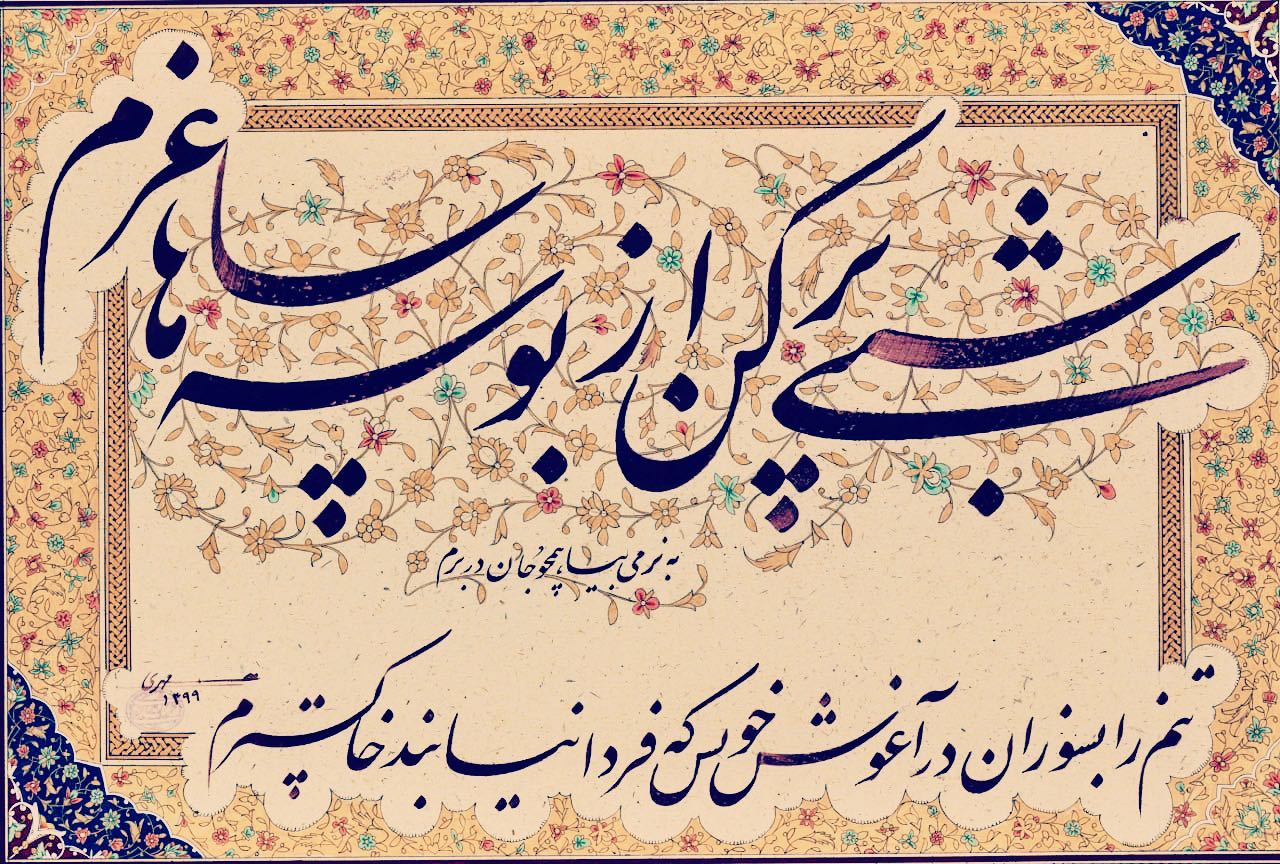 شبی پر کن از بوسه ها ساغرم
به نرمی بیا همچو جان در برم
تنم را بسوزان در آغوش خویش
که فردا نیابند خاکسترم
مهری
۱۳۹۹